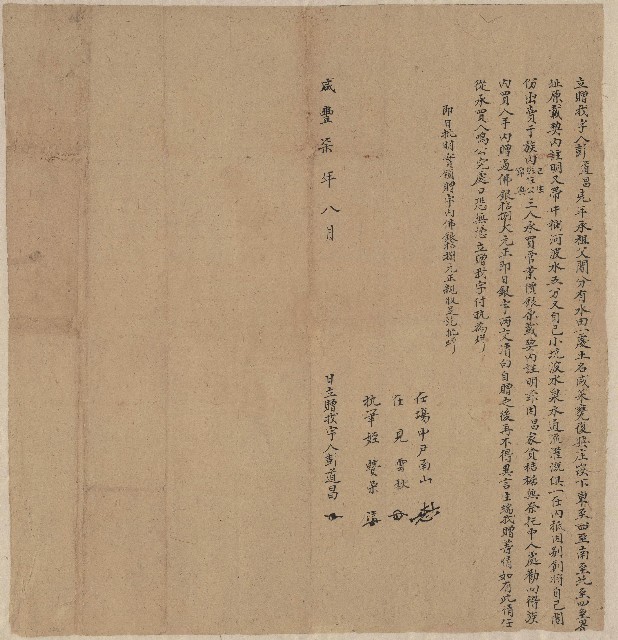 立贈找字人彭道昌先年承祖父鬮分有水田一處土名咸菜甕復興庄崁下東至西至南至北至四至界
址原載契內註明又帶牛欄河陂水五分又自己小坑陂水泉水通流灌溉俱一在內祇因別創將自己鬮
份出賣于族內三人承買管業價銀原載契內註明茲因昌家貧拮据無奈托中人處勸向得族
內買人手內贈過佛銀拾捌大元正即日銀字兩交清白自贈之後再不得異言生端找贈等情如有此情任
從承買人鳴公究處口恐無憑立贈找字付執為炤
即日批明實領贈字內佛銀拾捌元正親收足訖批炤
在場中戶南山
在見雲秋
執筆姪雙榮
咸豐柒年八月 日立贈找字人彭道昌